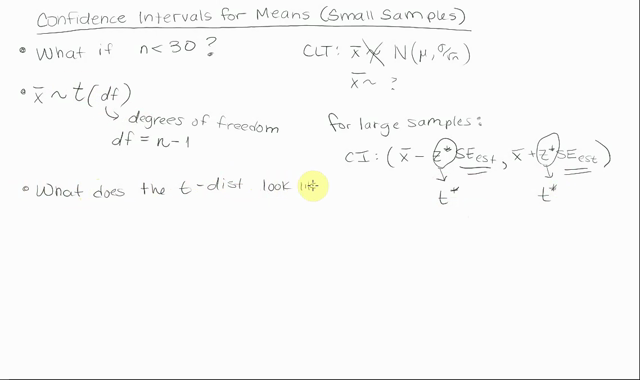 Confidence Intervals for Means (Small Samples)
• What if n < 30 ?
CLT: x̄ ~ N(μ, σ/√n)
x̄ ~ ?
• x̄ ~ t(df)
↳ degrees of freedom
df = n-1
for large samples:
CI: (x̄ - z* SEest, x̄ + z* SEest)
t* t*
• What does the t-dist look